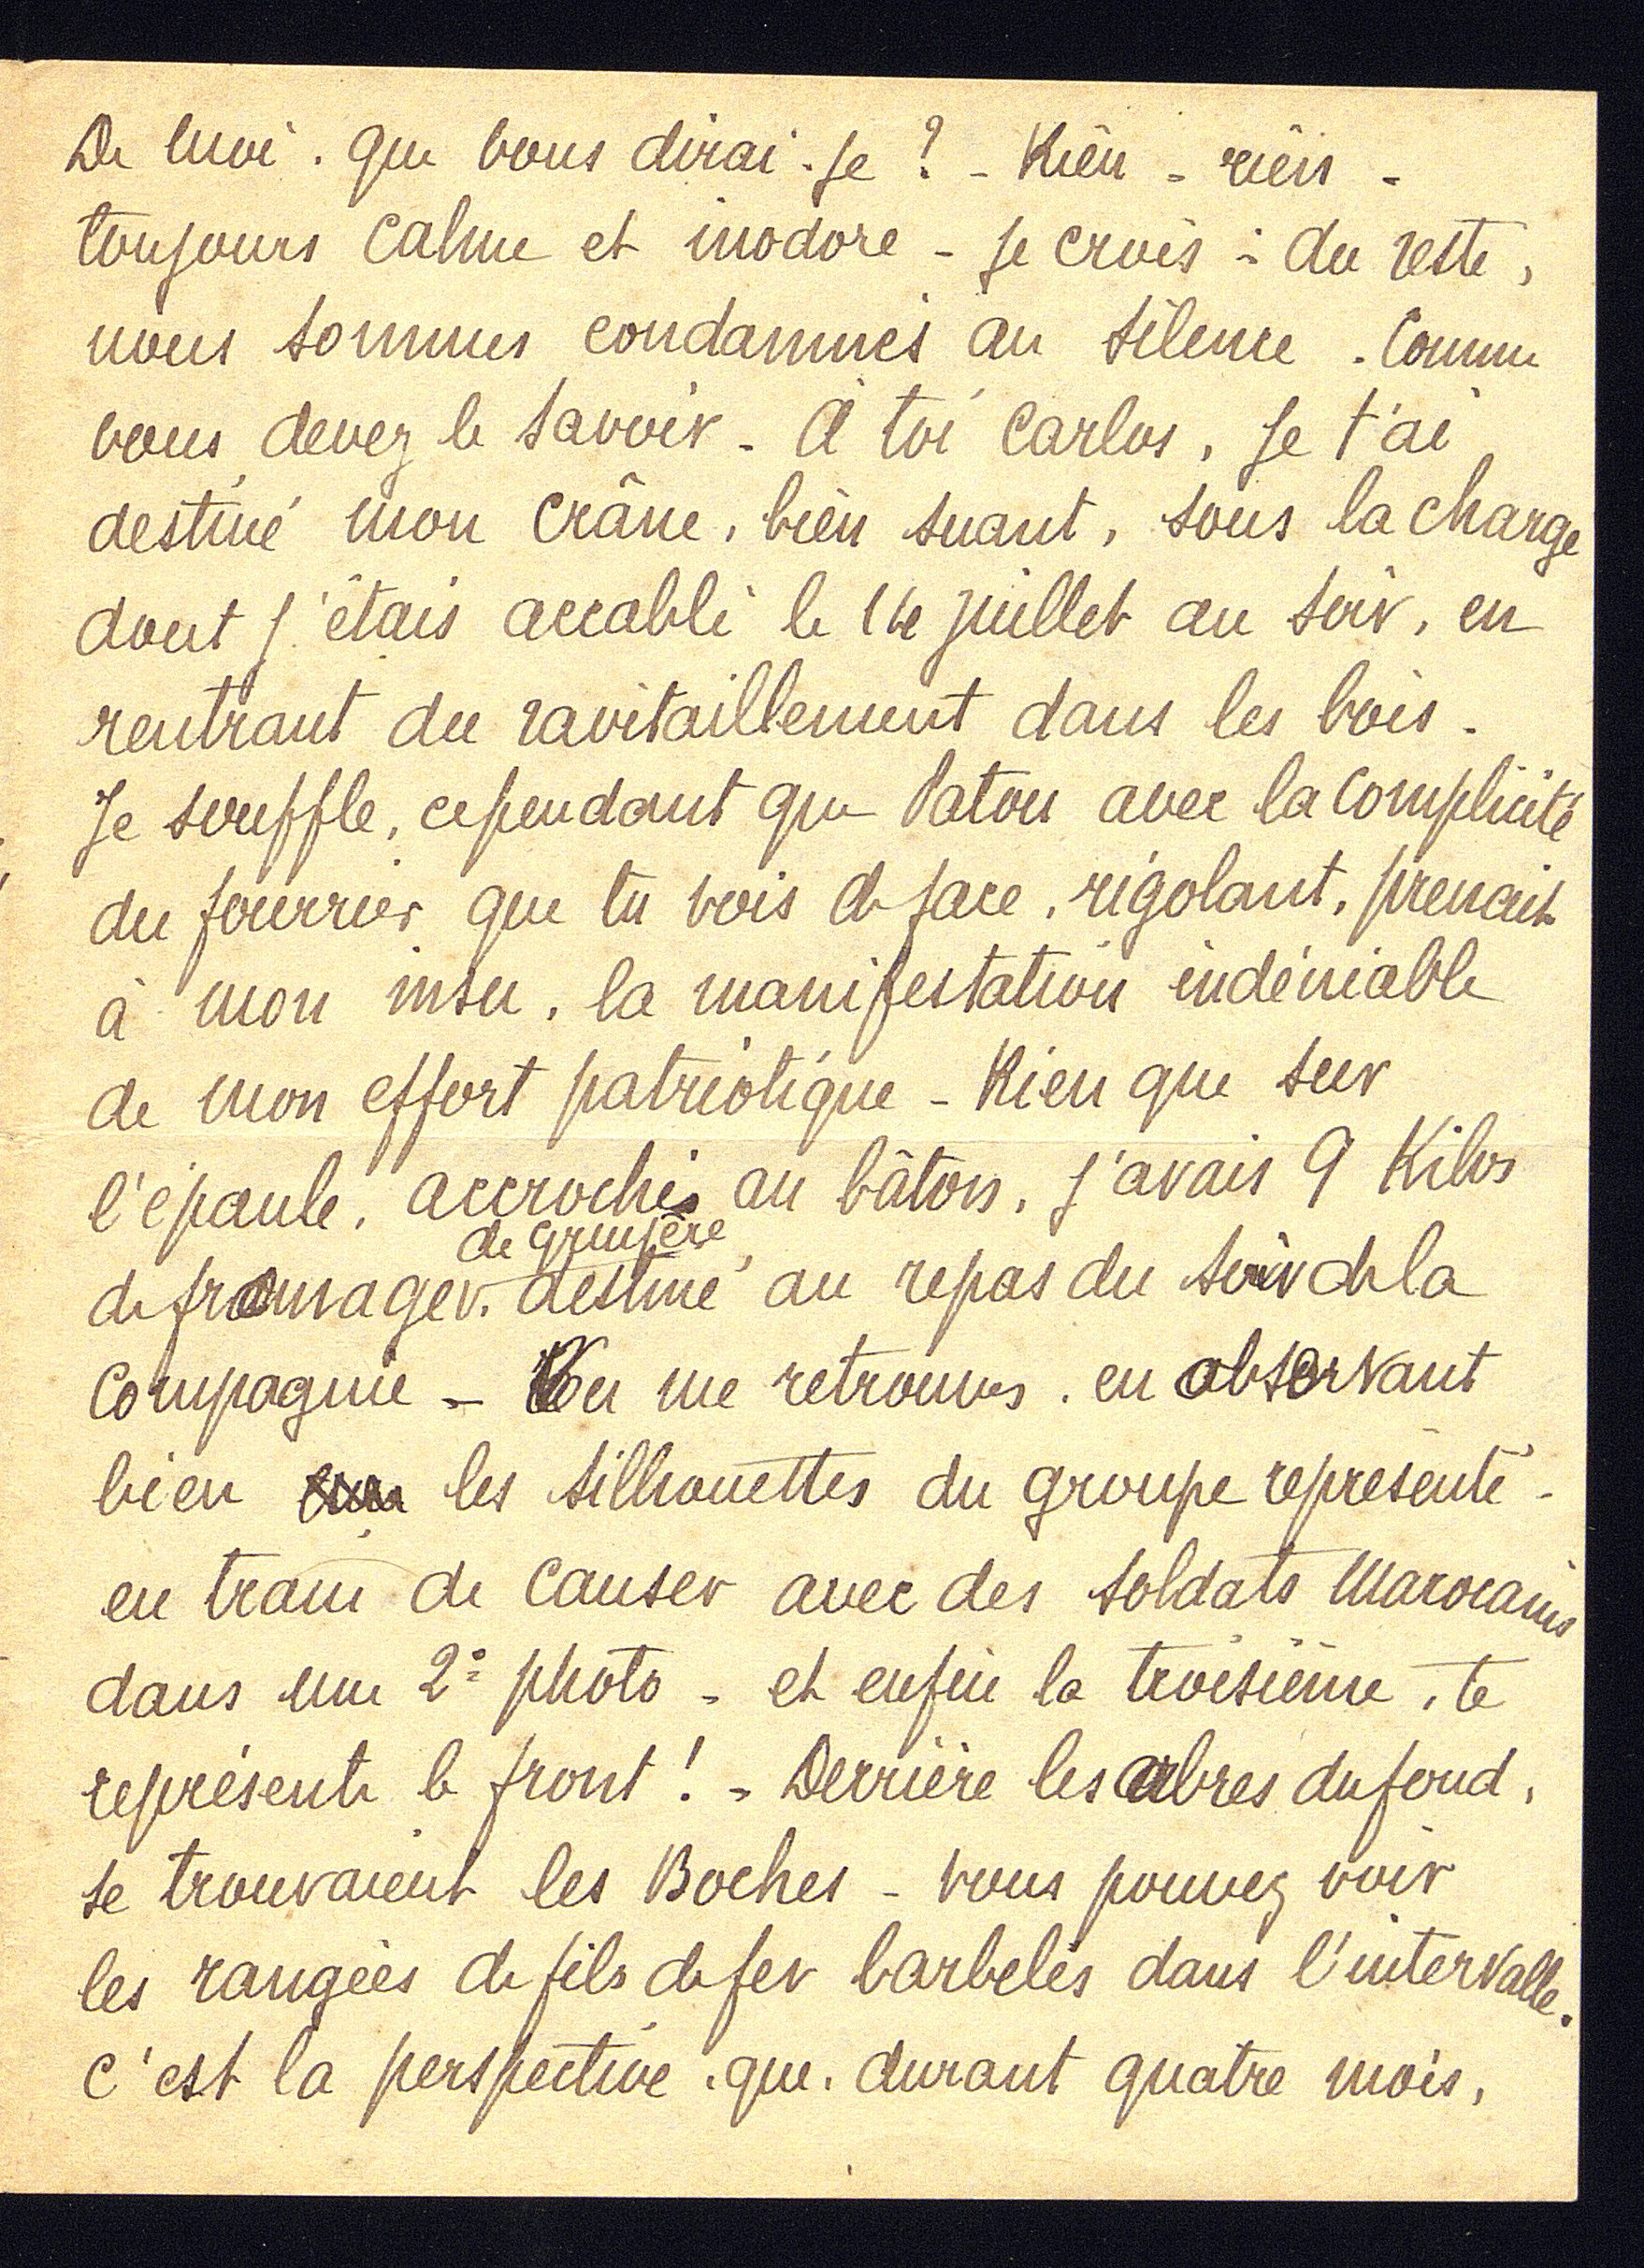 De moi. que vous dirai-je ? - Rien - rien -
toujours calme et inodore - je crois - du reste,
nous sommes condamnés au silence. Comme
vous devez le savoir - à toi Carlos, je t'ai
destiné mon crâne, bien suant, sous la charge
dont j'étais accablé le 14 juillet au soir, en
rentrant du ravitaillement dans les bois -
Je souffle, cependant que Patou avec la complicité
du fourrier que tu vois de face, rigolant, prenait
à mon insu, la manifestation indéniable
de mon effort patriotique - Rien que sur
l'épaule, accrochés au bâton, j'avais 9 Kilos
de gruyère
de fromage v. destiné au repas du soir de la
Compagnie - me retrouves. en observant
bien les silhouettes du groupe représenté -
en train de causer avec des soldats Marocains
dans une 2e photo - et enfin la troisième, te
représente le front ! - Derrière les arbres du fond,
se trouvaient les Boches - vous pouvez voir
les rangées de fils de fer barbelés dans l'intervalle.
C'est la perspective, que, durant quatre mois,